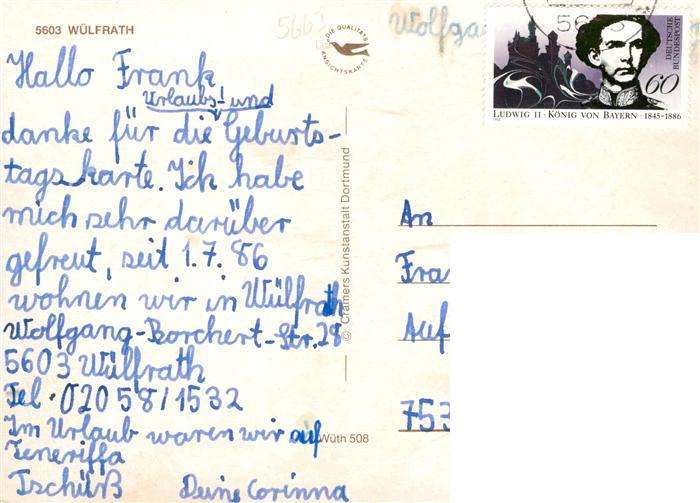 5603 WÜLFRATH
DIE QUALITÄTS
ANSICHTSKARTE
Hallo Frank
Urlaubs! und
danke für die Geburts-
tagskarte. Ich habe
mich sehr darüber
gefreut, seit 1.7.86
wohnen wir in Wülfrath
Wolfgang-Borchert-Str. 28
5603 Wülfrath
Tel. 02058/1532
Im Urlaub waren wir auf
Teneriffa
Tschüß Deine Corinna
© Cramers Kunstanstalt Dortmund
Wüth 508
5603 Wolfga
56
DEUTSCHE
BUNDESPOST
60
LUDWIG II · KÖNIG VON BAYERN · 1845-1886
An
Fra
Auf
753